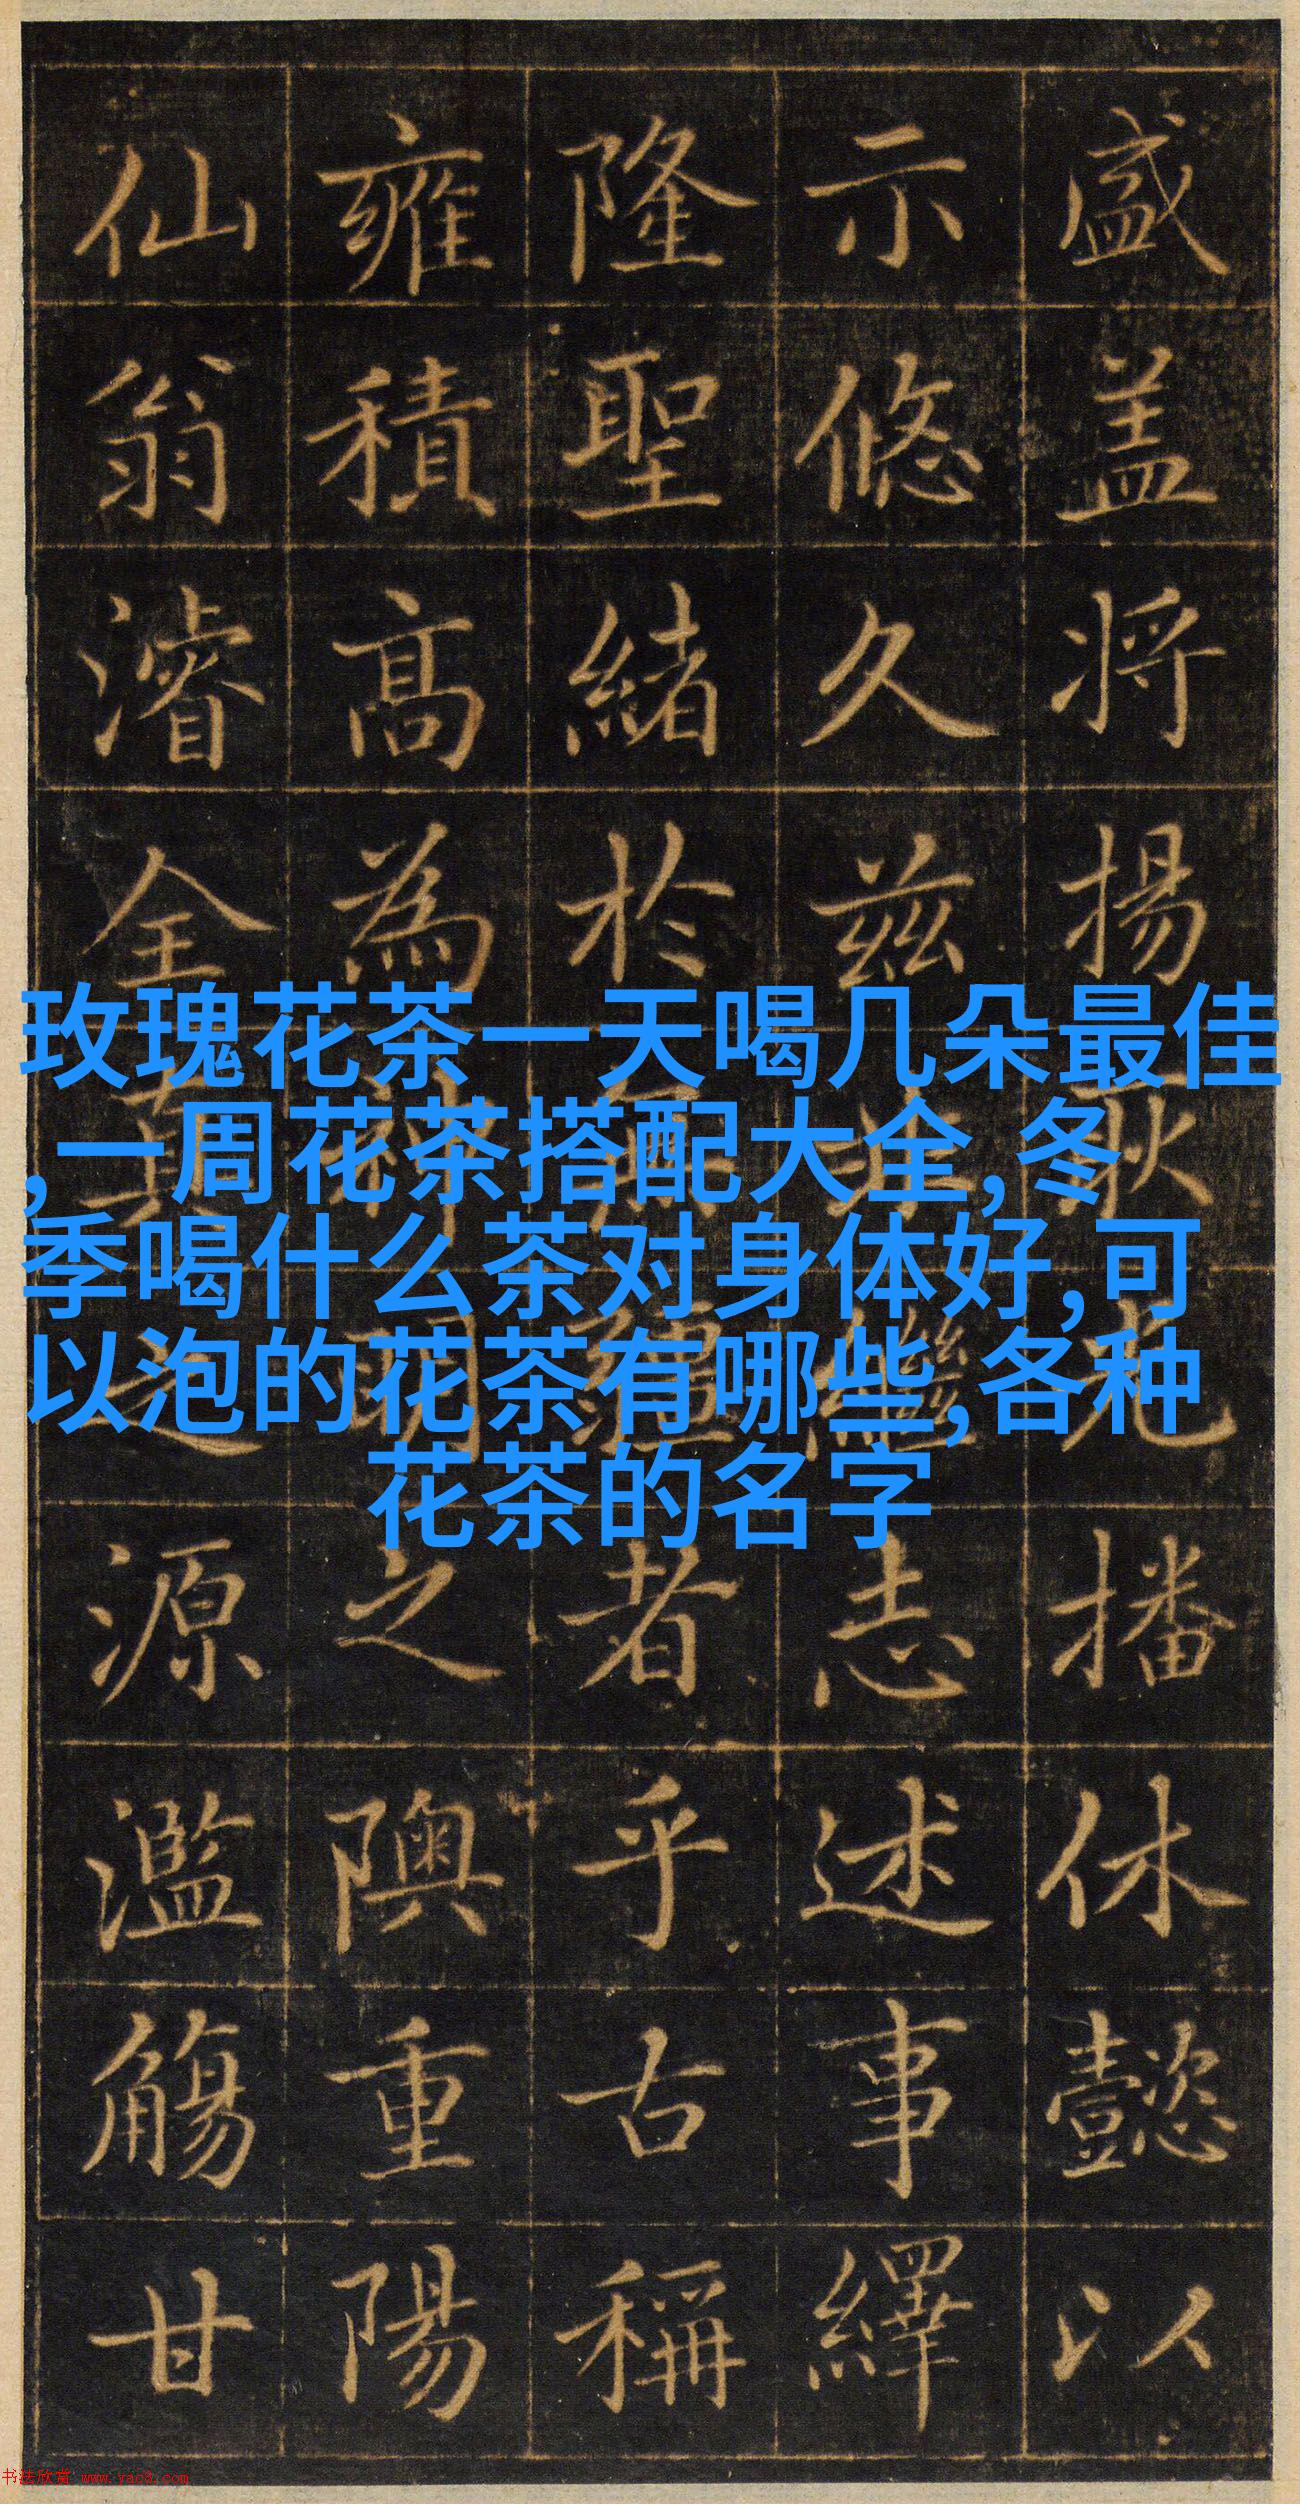 盛盖将揚耿光播休懿以
示悠久兹繼志述事繹
隆聖緒於無疆者乎古稱
雍積高為神明之隩重陽
仙翁濬全真之源濫觴甘
玫瑰花茶一天喝几朵最佳
,一周花茶搭配大全,冬
季喝什么茶对身体好,可
以泡的花茶有哪些,各种
花茶的名字
书法欣赏 www.yac8.com